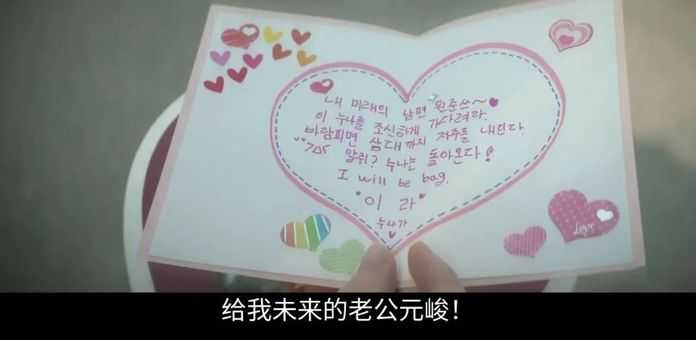 내 미래의 남편 원준쓰~
이 누나를 조신하게 기다려라.
바람피면 삼대까지 저주를 내린다.
알쥐? 누나는 돌아온다!
I will be bag.
이 라
누나가
Love
给我未来的老公元峻！